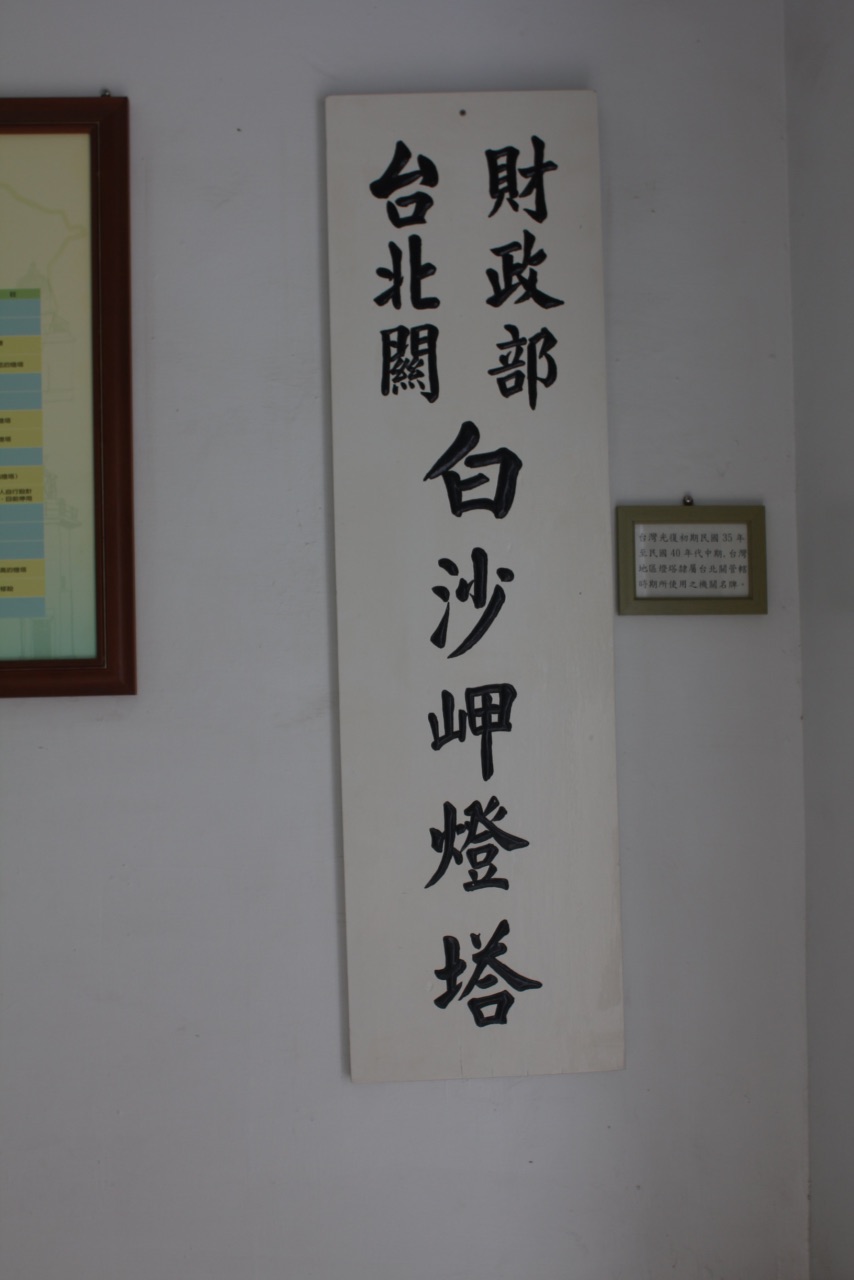 財政部
台北關
白沙岬燈塔
台灣光復初期民國35年
至民國40年代中期,台灣
地區燈塔隸屬台北關管轄
時期所使用之機關名牌。